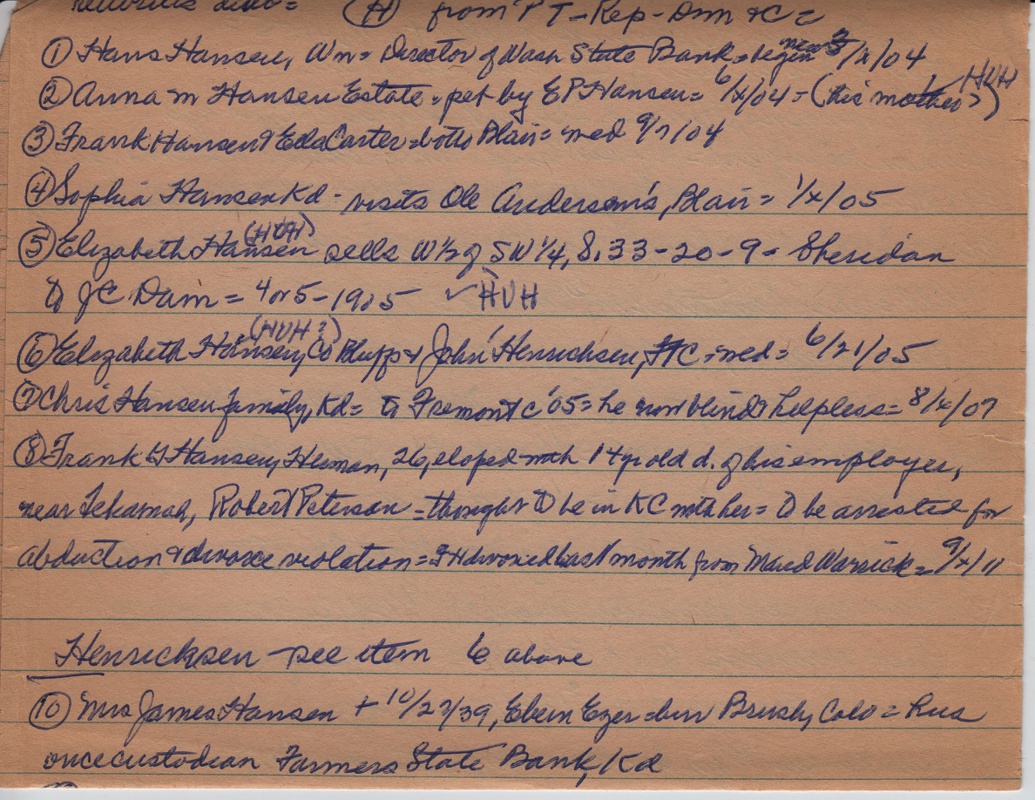 (H) from PT-Rep-Dem &C=
① Hans Hansen, Wn = Director of Wash State Bank = begin near 3/x/04
② Anna M Hansen Estate = pet by EP Hansen = 6/x/04 = (his mother?) HVH
③ Frank Hansen & Eda Carter = both Blair = med 9/7/04
④ Sophia Hansen Kd - visits Ole Anderson's, Blair = 1/x/05
⑤ Elizabeth Hansen (HVH) sells W½ of SW¼, 8, 33-20-9 = Sheridan
to JC Dam = 4 or 5-1905 ✓ HVH
⑥ Elizabeth Hansen, (HVH?) Co Bluffs & John Henricksen, FtC = med = 6/21/05
⑦ Chris Hansen family, Kd = to Fremont c'05 = he now blind & helpless = 8/x/07
⑧ Frank G Hansen, Herman, 26, eloped with 14 yr old d. of his employer,
near Tekamah, Robert Peterson = thought to be in KC with her = to be arrested for
abduction & divorce violation = FH divorced last month from Maud Warrick = 9/x/11
Henricksen - see item 6 above
⑩ Mrs James Hansen + 10/27/39, Eben Ezer = bur Brush, Colo = Hus
once custodian Farmers State Bank, Kd